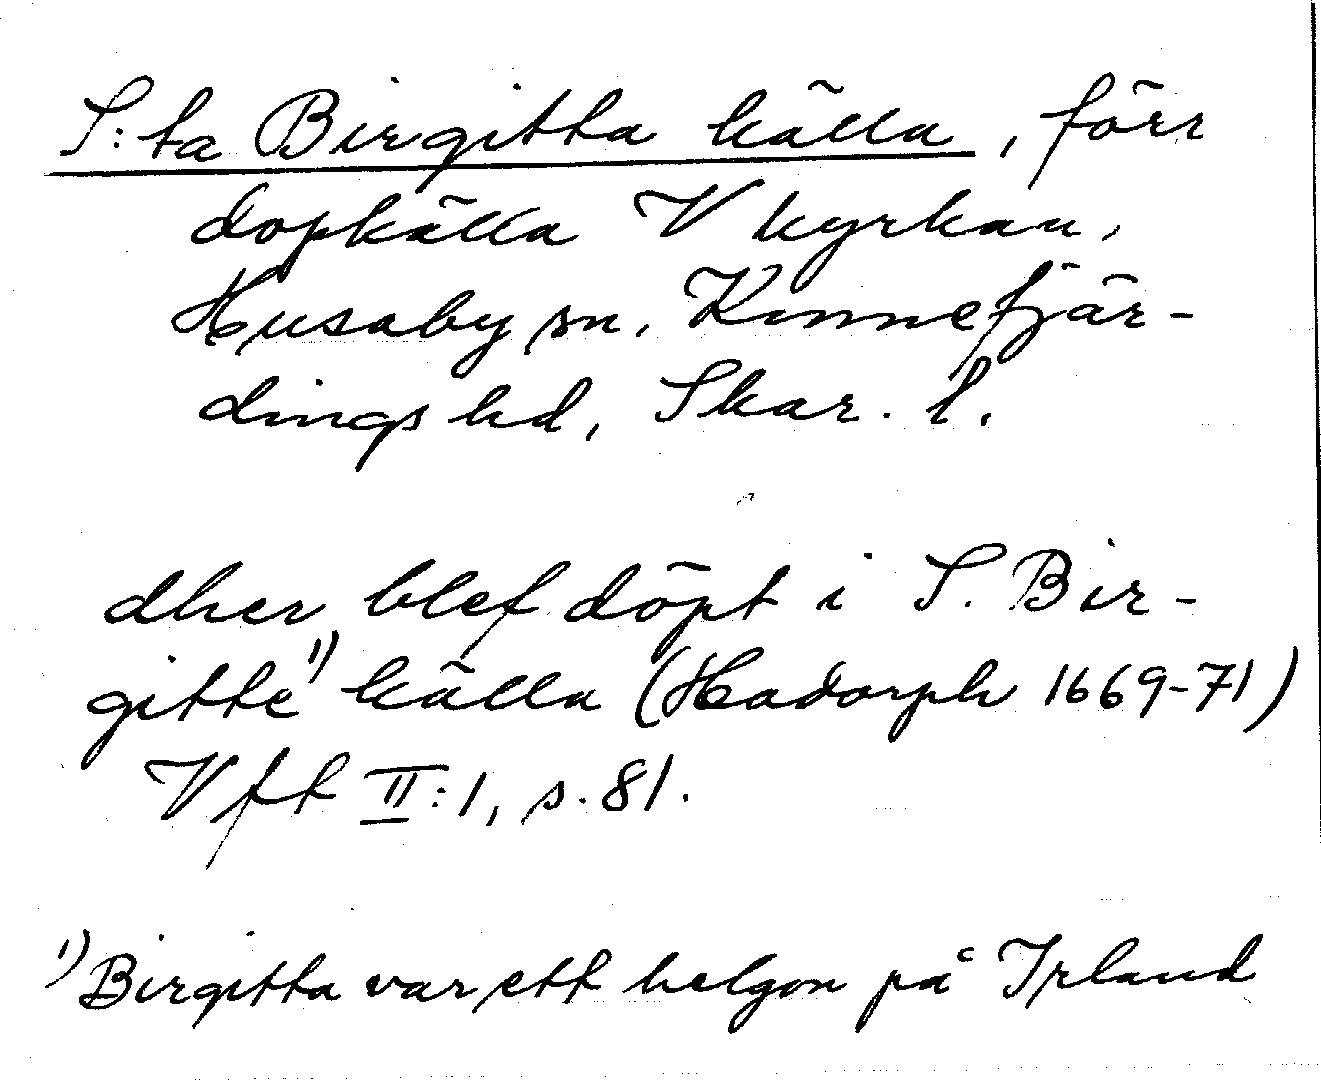 S:ta Birgitta källa, förr
dopkälla V kyrkan,
Husaby sn, Kinnefjär-
dings hd, Skar. l.
dher blef döpt i S. Bir-
gitte¹⁾ källa (Hadorph 1669-71)
Vft II:1, s. 81.
¹⁾ Birgitta var ett helgon på Irland